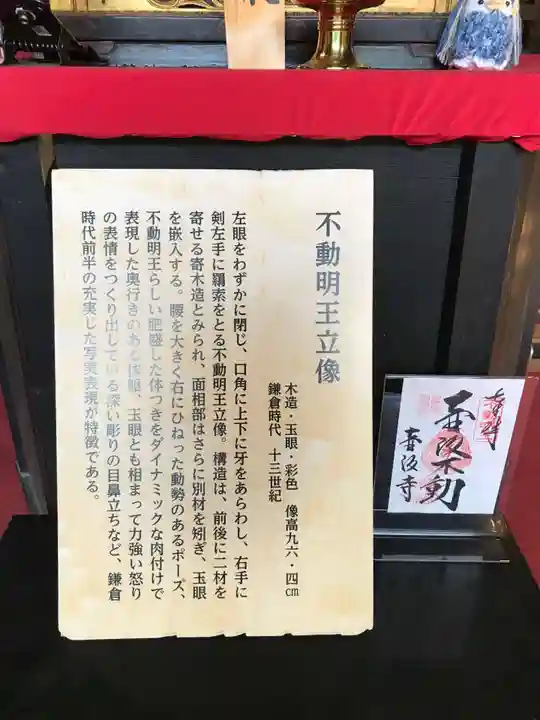 不動明王立像
木造・玉眼・彩色　像高九六・四㎝
鎌倉時代　十三世紀
左眼をわずかに閉じ、口角に上下に牙をあらわし、右手に
剣左手に羂索をとる不動明王立像。構造は、前後に二材を
寄せる寄木造とみられ、面相部はさらに別材を矧ぎ、玉眼
を嵌入する。腰を大きく右にひねった動勢のあるポーズ、
不動明王らしい肥盛した体つきをダイナミックな肉付けで
表現した奥行きのある体躯、玉眼とも相まって力強い怒り
の表情をつくり出している深い彫りの目鼻立ちなど、鎌倉
時代前半の充実した写実表現が特徴である。
奉拝
壷阪不動
壷阪寺